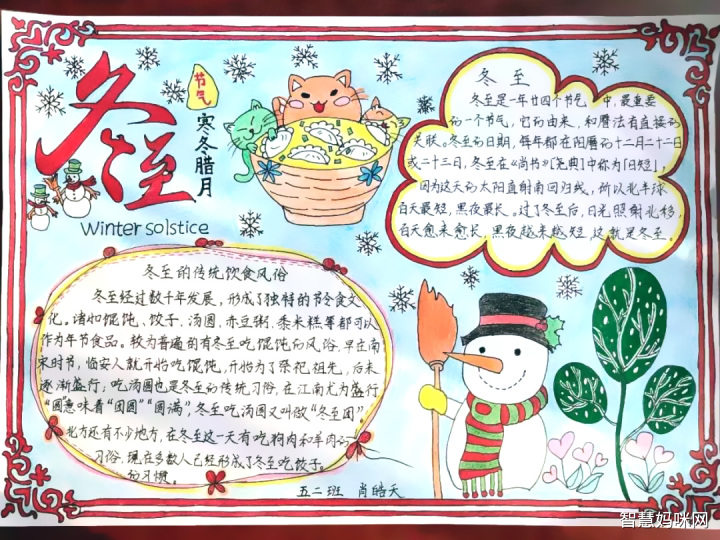 冬至
节气
寒冬腊月
Winter solstice
冬 至
冬至是一年廿四个节气 中，最重要
的一个节气，它的由来，和曆法有直接的
关联。冬至的日期，每年都在阳曆的十二月二十二日
或二十三日，冬至在《尚书》〖尧典〗中称为「日短」，
因为这天的太阳直射南回归线，所以北半球
白天最短，黑夜最长。过了冬至后，日光照射北移，
白天愈来愈长，黑夜越来越短，这就是冬至。
冬至的传统饮食风俗
冬至经过数千年发展，形成了独特的节令食文
化。诸如馄饨、饺子、汤圆、赤豆粥、黍米糕等都可以
作为年节食品。较为普遍的有冬至吃馄饨的风俗，早在南
宋时节，临安人就开始吃馄饨，开始为了祭祀祖先，后来
逐渐盛行；吃汤圆也是冬至的传统习俗，在江南尤为盛行
“圆意味着“团圆”“圆满”，冬至吃汤圆又叫做“冬至团”。
北方还有不少地方，在冬至这一天有吃狗肉和羊肉的
习俗，现在多数人已经形成了冬至吃饺子。
的习惯。
五二班 肖皓天
智慧妈咪网